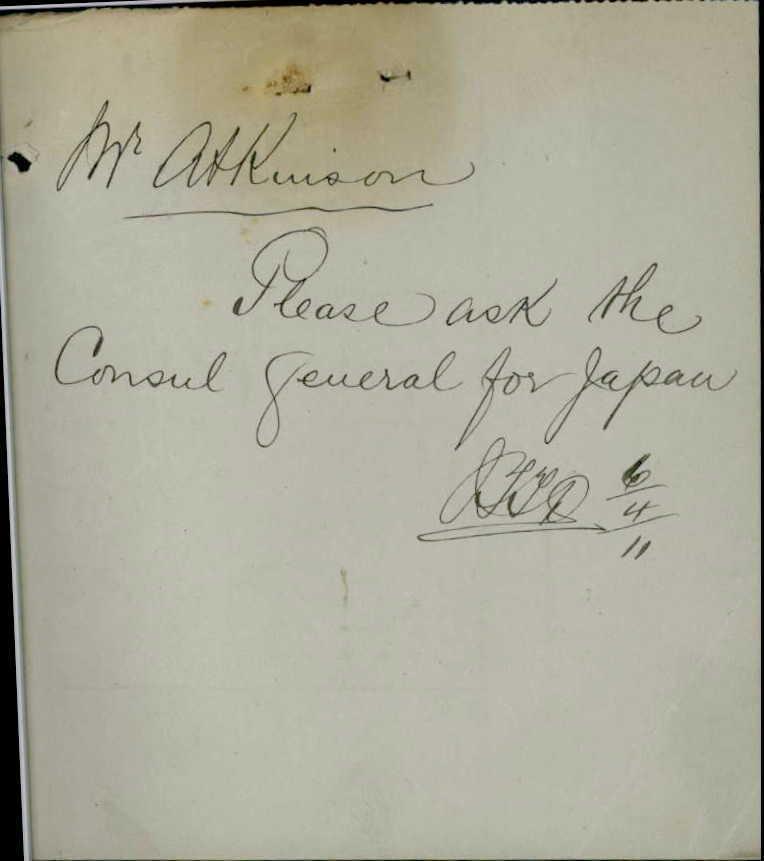 Mr Atkinson
Please ask the
Consul General for Japan
6/4/11